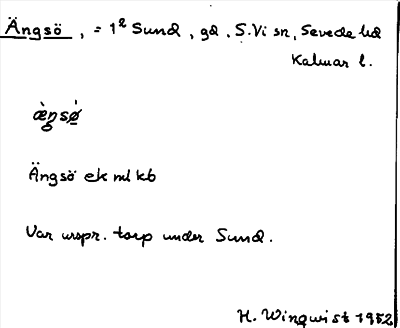 Ängsö, = 1² Sund, gd, S. Vi sn, Sevede hd
Kalmar l.
æ̀ŋsø̀
Ängsö ek ml kb
Var urspr. torp under Sund.
H. Winqvist 1952